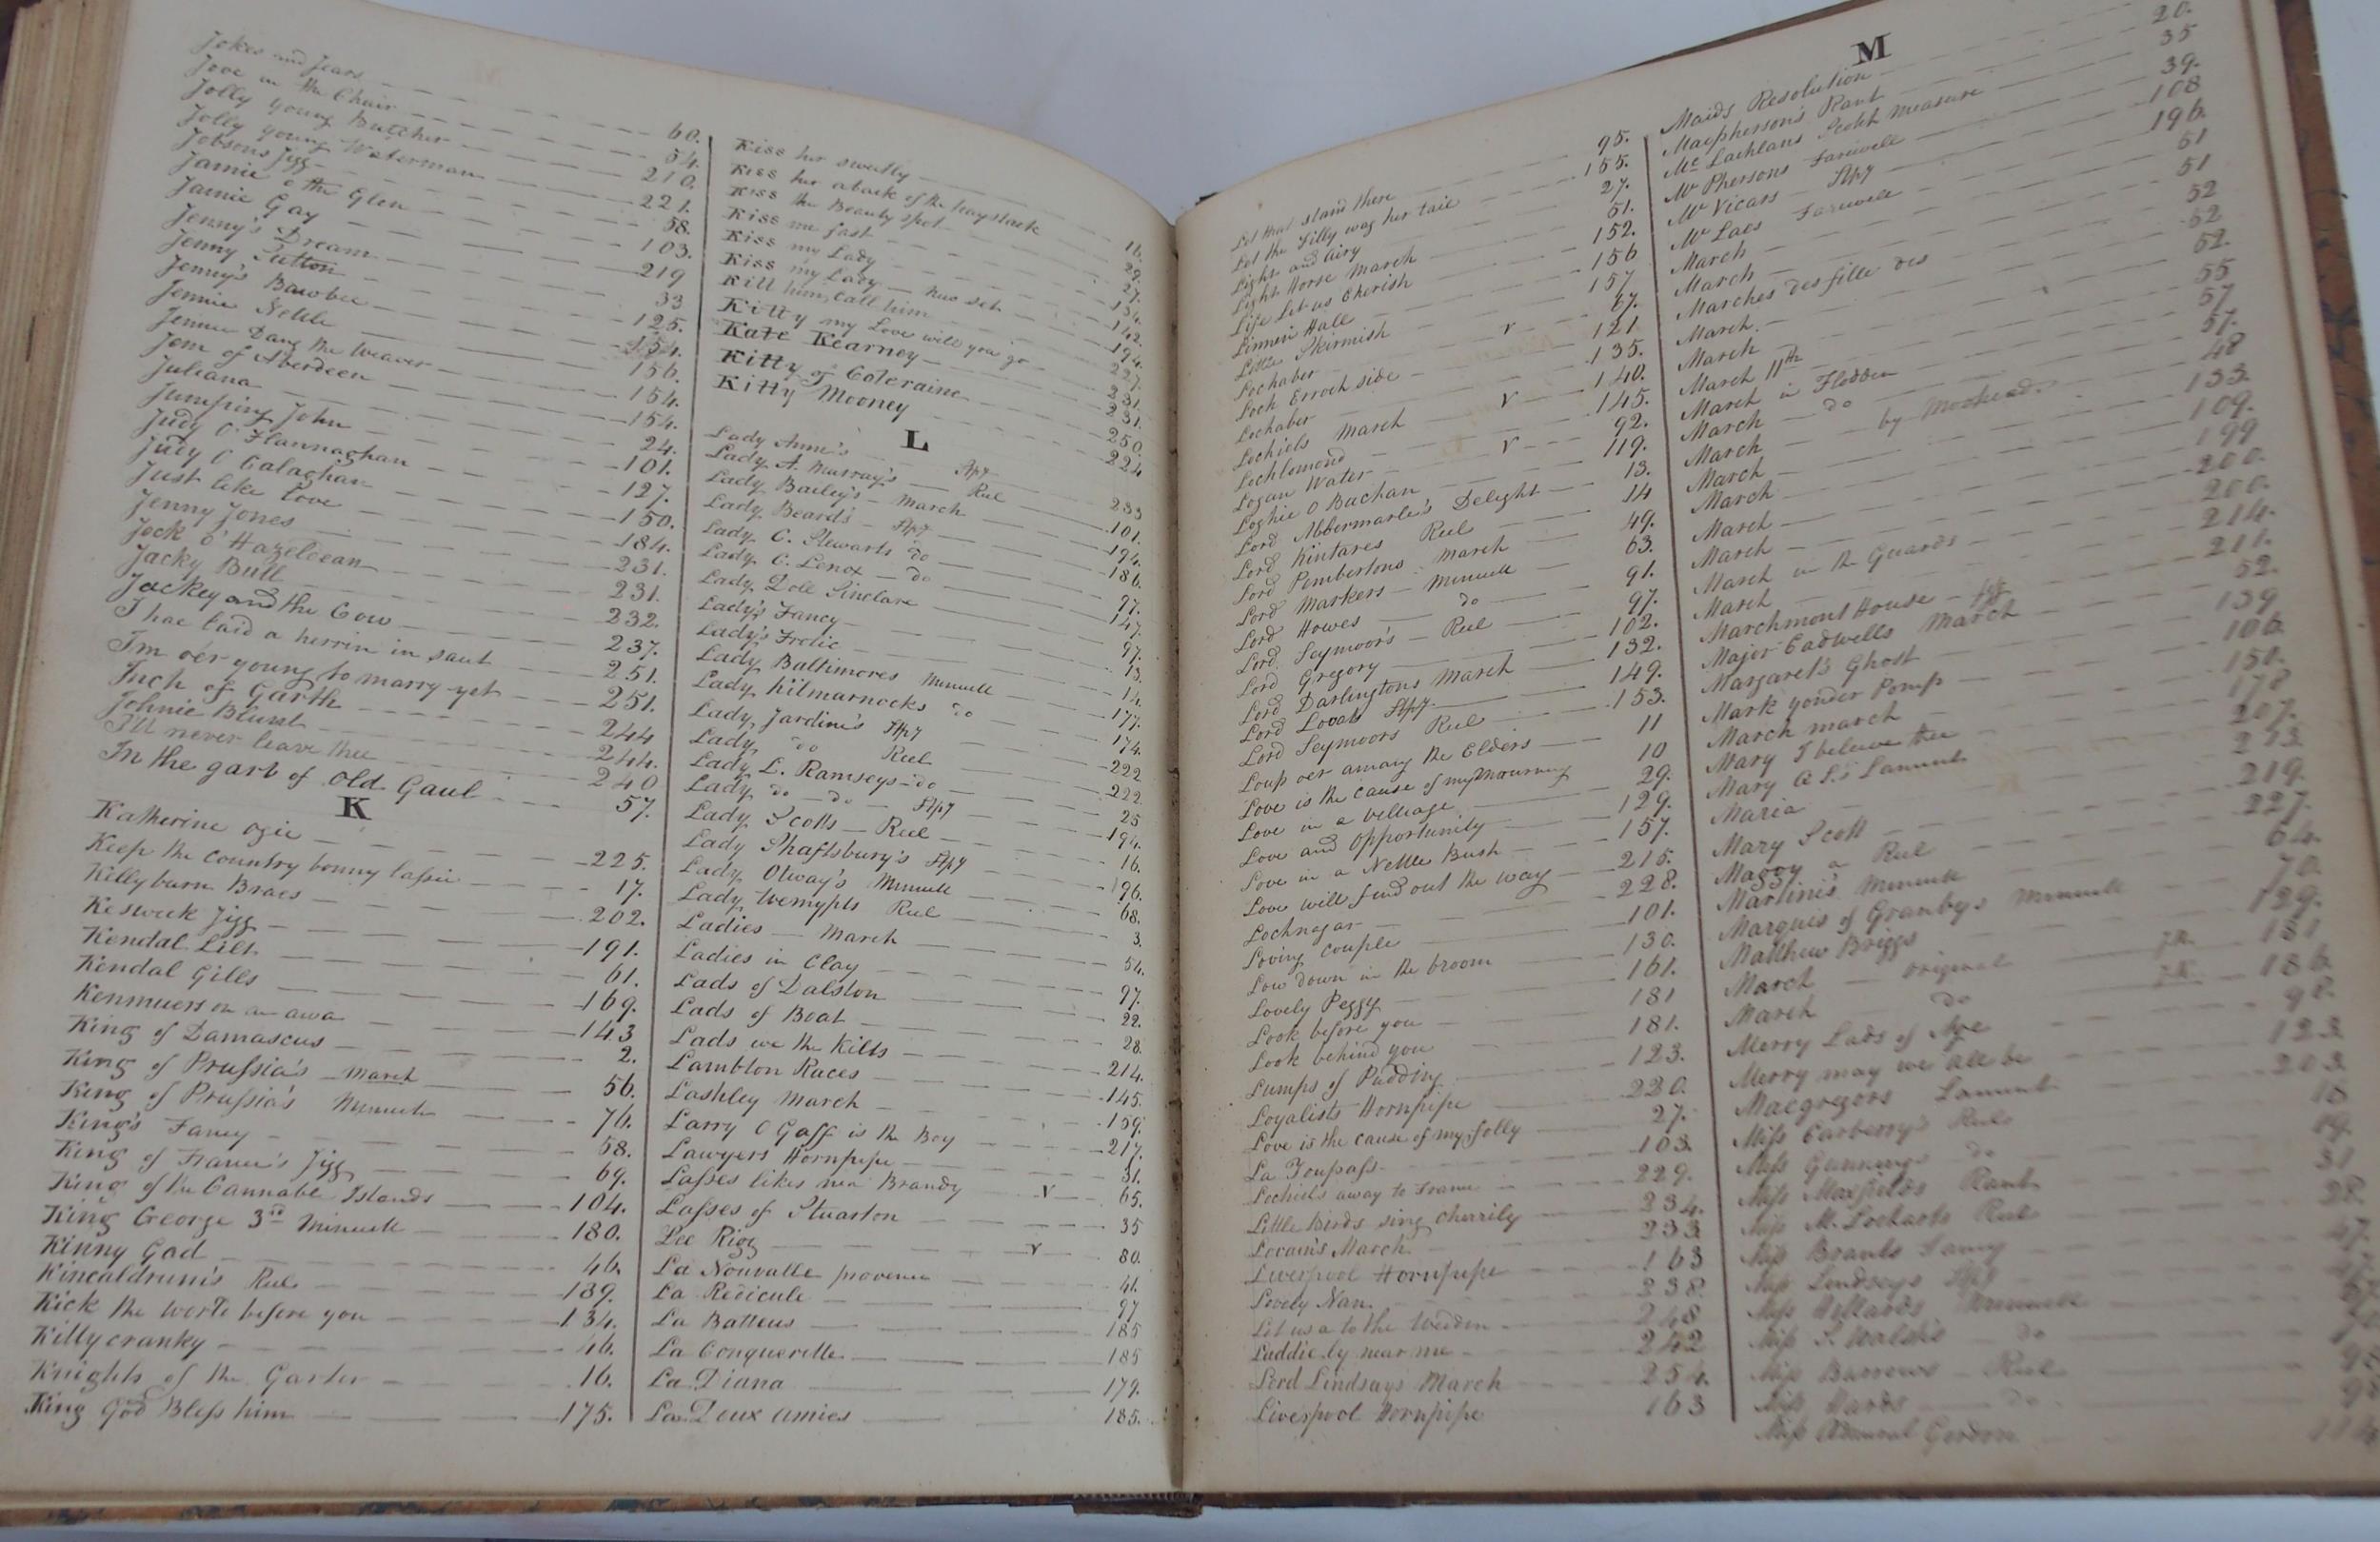 Jokes and Jears 60.
Jove in the Chair 54.
Jolly young Butcher 210.
Jolly young Waterman 221.
Jobsons Jigg 58.
Jamie o the Glen 103.
Jamie Gay 219
Jenny's Dream 33
Jenny Sutton 125.
Jenny's Bawbee 154.
Jennie Nettle 156.
Jennie Dang the Weaver 154.
Jem of Aberdeen 154.
Juliana 24.
Jumping John 101.
Judy O Flannaghan 127.
Judy O Calaghan 150.
Just like Love 184.
Jenny Jones 231.
Jock O' Hazeldean 231.
Jacky Bull 232.
Jockey and the Cow 237.
I hae laid a herrin in saut 251.
I'm oer young to marry yet 251.
Inch of Garth 244
Johnie Blunt 244.
I'll never leave thee 240
In the garb of old Gaul 57.
K
Katherine Ogie 225.
Keep the Country bonny lassie 17.
Killyburn Braes 202.
Keswick Jigg 191.
Kendal Lilt 61.
Kendal Gills 169.
Kenmuers on an awa 143
King of Damascus 2.
King of Prussia's March 56.
King of Prussia's Minuett 76.
King's Fancy 58.
King of France's Jigg 69.
King of the Cannabal Islands 104.
King George 3rd Minuett 180.
Kinny God 46.
Kincaldrum's Reel 139.
Kick the World before you 134.
Killycranky 46.
Knights of the Garter 16.
King God Bless him 175.
Kiss her sweetly 16.
Kiss her aback of the haystack 29.
Kiss the Beauty spot 27.
Kiss me fast 134.
Kiss my Lady 142.
Kiss my Lady — new set 194.
Kill him, Call him 227.
Kitty my Love will you go 231.
Kate Kearney 231.
Kitty of Coleraine 250.
Kitty Mooney 224
L
Lady Anne's Stpy 233
Lady A. Murray's Reel 101.
Lady Bailey's — March 194.
Lady Beard's — Stpy 186.
Lady C. Stewarts do 97.
Lady C. Lenox — do 147.
Lady Doll Sinclare 97.
Lady's Fancy 13.
Lady's Frolic 14.
Lady Baltimores Minuett 177.
Lady Kilmarnocks do 174.
Lady Jardine's Stpy 222
Lady do Reel 222.
Lady L. Ramseys — do 25
Lady do — do — Stpy 194.
Lady Scotts — Reel 16.
Lady Shaftsbury's Stpy 196.
Lady Otway's Minuett 68.
Lady Wemyss Reel 3.
Ladies — March 54.
Ladies in Clay 97.
Lads of Dalston 22.
Lads of Boat 28.
Lads we the Kilts 214.
Lambton Races 145.
Lashley March 159.
Larry O Gaff is the Boy 217.
Lawyers Hornpipe 31.
Lasses likes nea Brandy v 65.
Lasses of Stuarton 35
Lee Rigg v 80.
La Nouvalle provence 41.
La Redicule 97
La Batteus 185
La Conquerette 185
La Diana 179.
La Deux Amies 185.
Let that stand there 95.
Let the Filly wag her tail 155.
Light and Airy 27.
Light Horse March 51.
Life Let us Cherish 152.
Linnen Hall 156
Little Skirmish 157
Lochaber v 67.
Loch Erroch side 121
Lochaber 135.
Lochiels March 140.
Lochlomond v 145.
Logan Water 92.
Loghie O Buchan v 119.
Lord Abbermarle's Delight 13.
Lord Kintares Reel 14
Lord Pembertons March 49.
Lord Markers — Minuett 63.
Lord Howes — do 91.
Lord Seymoor's — Reel 97.
Lord Gregory 102.
Lord Darlingtons March 132.
Lord Lovats Stpy 149.
Lord Seymoors Reel 153.
Loup oer amang the Elders 11
Love is the cause of my Mourning 10
Love in a village 29.
Love and Opportunity 129.
Love in a Nettle Bush 157.
Love will find out the way 215.
Lochnagar 228.
Loving couple 101.
Low down in the broom 130.
Lovely Peggy 161.
Look before you 181
Look behind you 181.
Lumps of Pudding 123.
Loyalists Hornpipe 220.
Love is the cause of my folly 27.
La Toupass 103.
Lochiels away to France 229.
Little Birds sing cherrily 234.
March. 233
Liverpool Hornpipe 163
Lovely Nan. 238.
Let us a to the 248
Laddie ly near me 242
Lord Lindsays March 254.
Liverpool Hornpipe 163
M
Maids Resolution 20.
Macpherson's Rant 35
Mc Lachlans Scotch Measure 39.
Mc Phersons Farewell 108
Mc Vicars — Stpy 196.
Mc Laes Farewell 51
March 51
March 52
Marches des fille des 52
March. 52.
March 55
March 11th 57
March in Flodden 57.
March — do 48
March — by Moorhead. 133.
March 109.
March 199
March 200.
March 200.
March in the Guards 214.
March 211.
Marchmont House — Stpy 52.
Major Cadwells March 139
Margaret's Ghost 106.
Mark yonder Pomp 150.
March march 178
Mary I believe thee 207.
Mary Q. S.'s Lament 213
Maria 219.
Mary Scott 227.
Maggy a Reel 64.
Martini's Minuett 70.
Marquis of Granbys Minuett 129.
Matthew Briggs 181
March — original 186.
March do 98.
Merry Lads of Ayr 123
Merry may we all be 203
Macgregors Lament 18
Miss Carberry's Reel 19.
Miss Gunnings do 31
Miss Maxfields Rant 28.
Miss M. Lockarts Reel 47.
Miss Brants Fancy
Miss Lindseys Stpy
Miss Minuett
Miss S. Walshs do
Miss Barrows — Reel
Miss Wards do
Miss Admiral Gordon